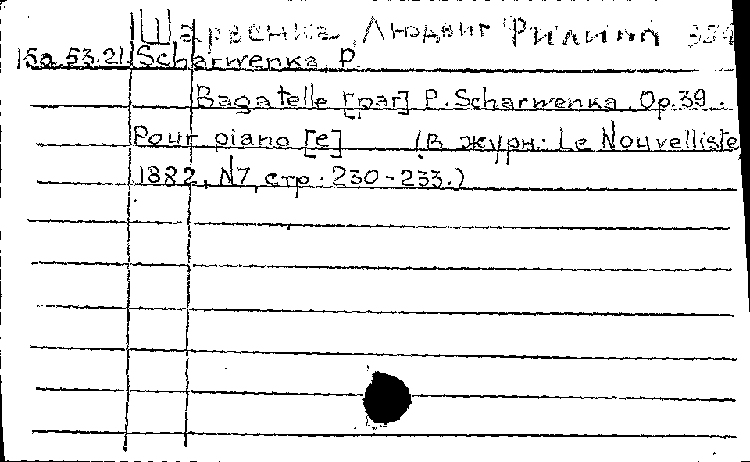 Шарвенка, Людвиг Филипп 339
15а.53.21. Scharwenka, P.
Bagatelle [par] P. Scharwenka. Op. 39.
Pour piano [e] (В журн.: Le Nouvelliste,
1882, N7, стр. 230-233.)